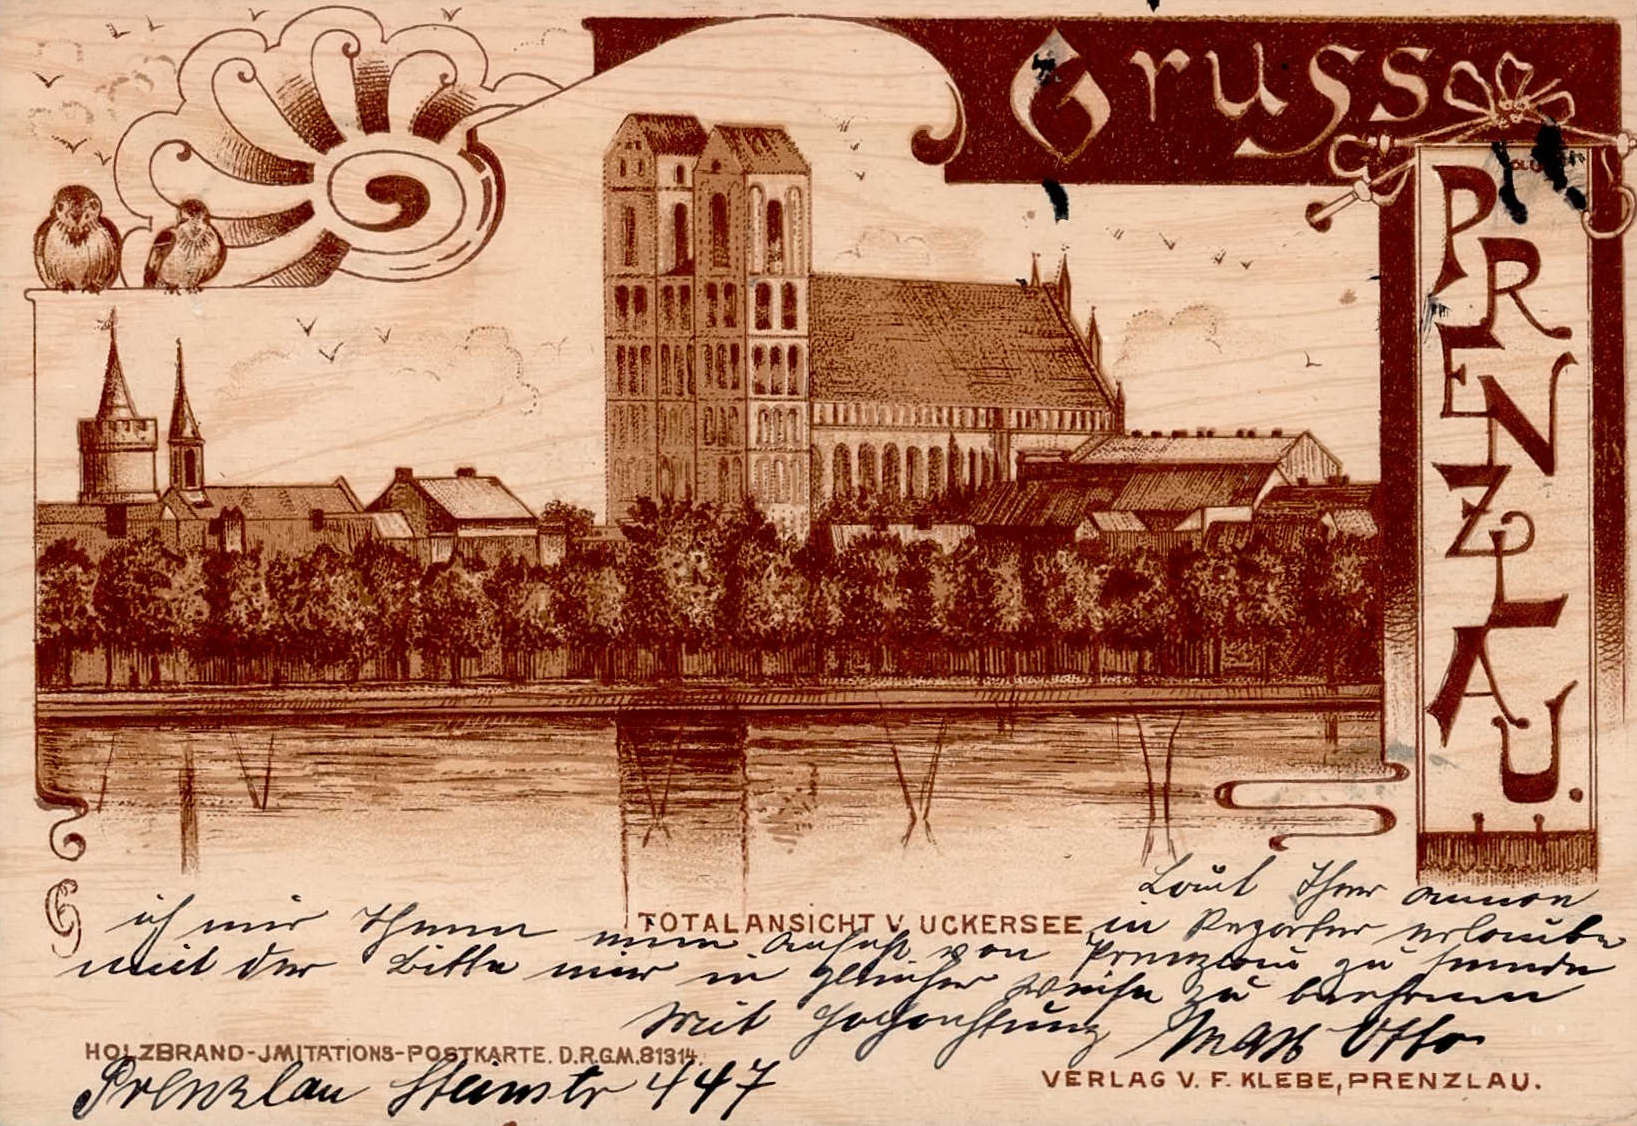 Gruss a.
PRENZLAU.
Laut Ihrer annon
TOTALANSICHT V. UCKERSEE
in Reporter erlaube
ich mir Ihnen eine Ansicht von Prenzlau zu senden
mit der Bitte mir in gleicher Weise zu beehren
Mit Hochachtung Max Otto
HOLZBRAND-JMITATIONS-POSTKARTE. D.R.G.M. 81314.
Prenzlau Steinstr 447
VERLAG V. F. KLEBE, PRENZLAU.